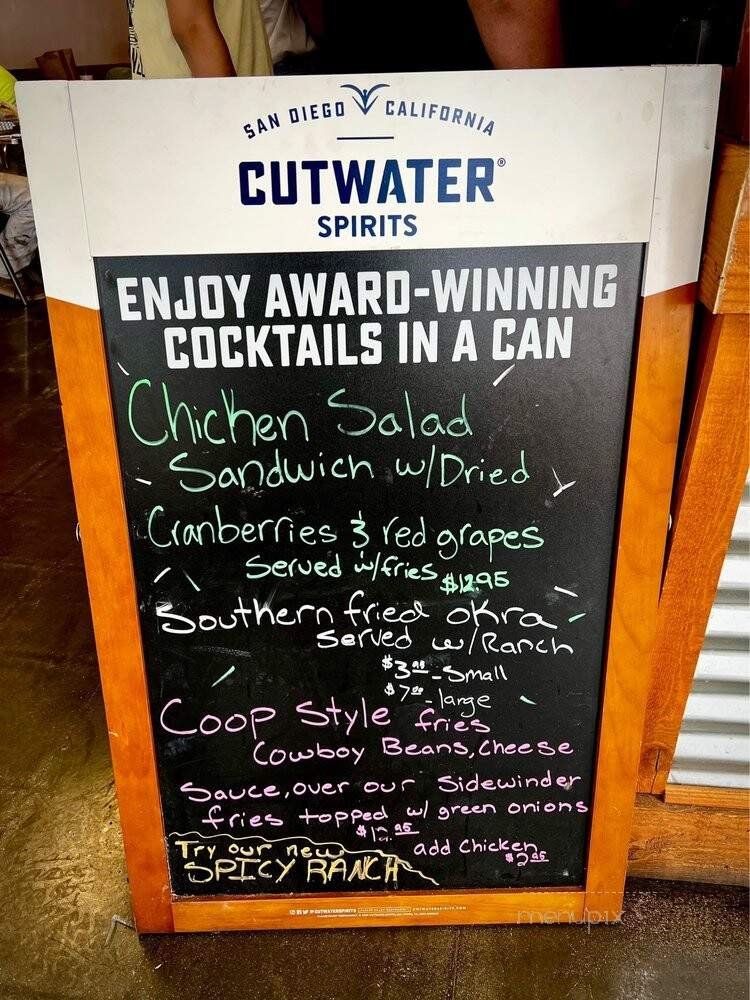 SAN DIEGO CALIFORNIA
CUTWATER®
SPIRITS
ENJOY AWARD-WINNING
COCKTAILS IN A CAN
Chicken Salad
Sandwich w/Dried
Cranberries & red grapes
Served w/fries $12.95
Southern fried okra
Served w/Ranch
-Small
- large
Coop Style fries
Cowboy Beans, Cheese
Sauce, over our Sidewinder
fries topped w/ green onions
add Chicken
Try our new
SPICY RANCH
menupix